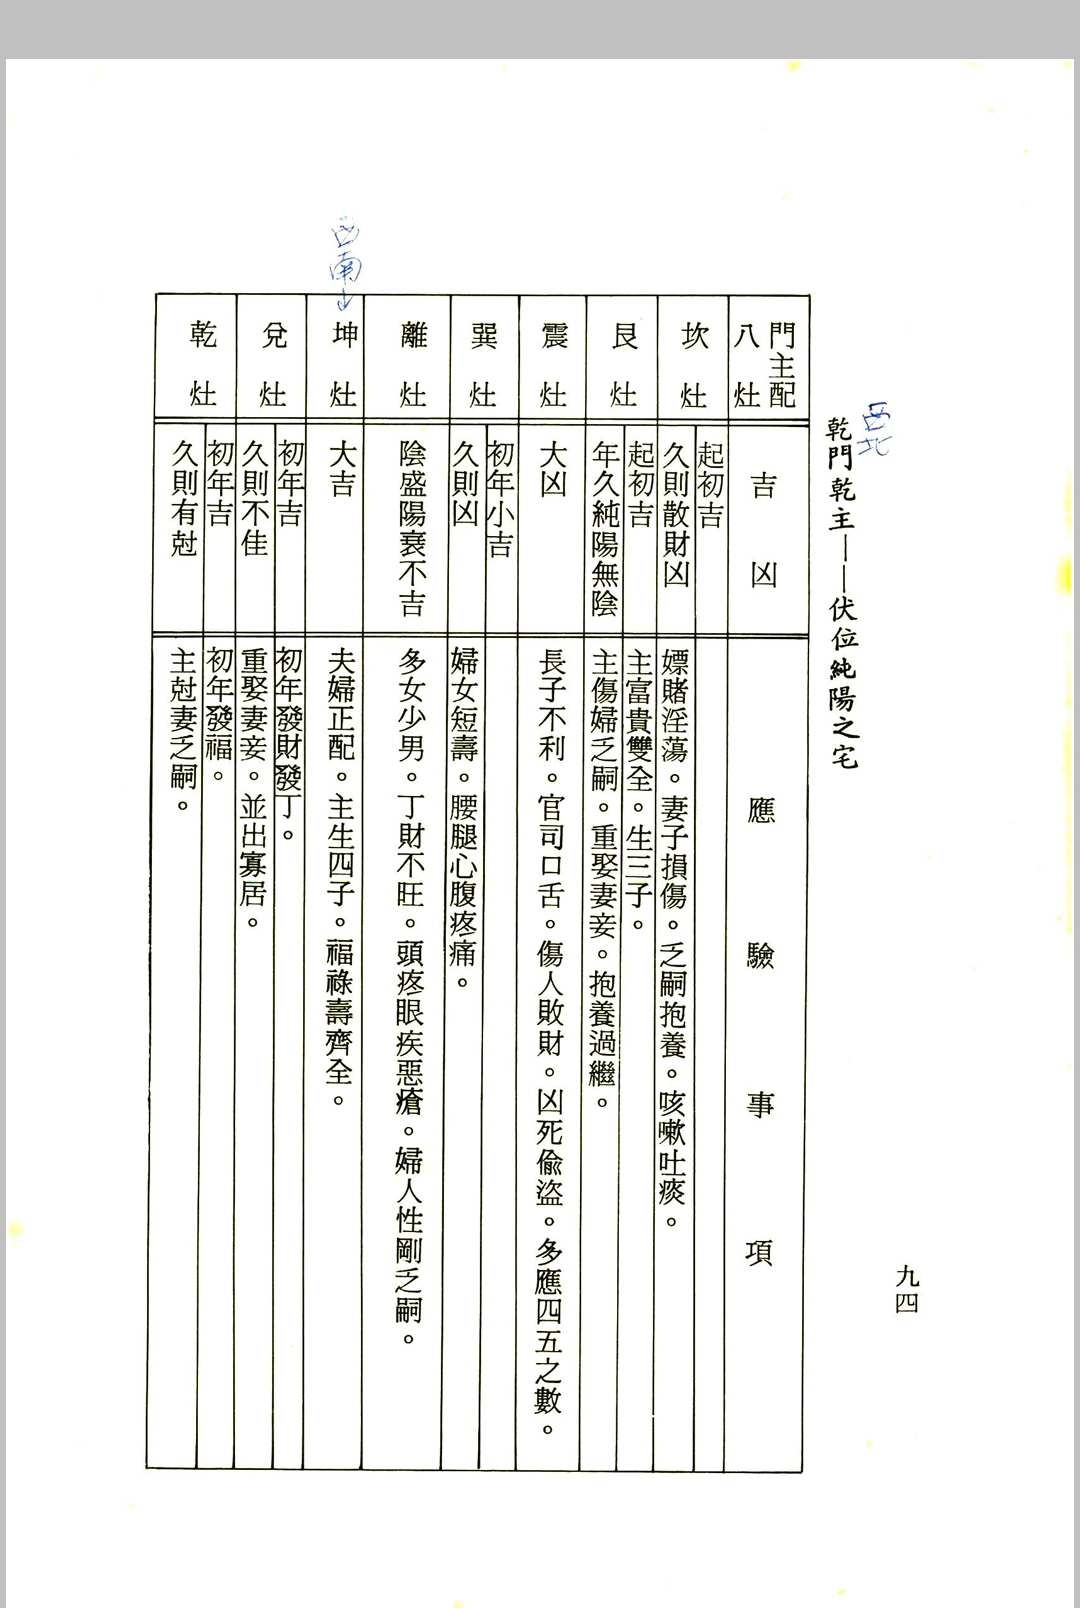 九四
西北
乾門乾主——伏位純陽之宅
門主配
八灶
吉凶
應驗事項
坎灶
起初吉
久則散財凶
嫖賭淫蕩。妻子損傷。乏嗣抱養。咳嗽吐痰。
艮灶
起初吉
年久純陽無陰
主富貴雙全。生三子。
主傷婦乏嗣。重娶妻妾。抱養過繼。
震灶
大凶
長子不利。官司口舌。傷人敗財。凶死偷盜。多應四五之數。
巽灶
初年小吉
久則凶
婦女短壽。腰腿心腹疼痛。
離灶
陰盛陽衰不吉
多女少男。丁財不旺。頭疼眼疾惡瘡。婦人性剛乏嗣。
西南
坤灶
大吉
夫婦正配。主生四子。福祿壽齊全。
兌灶
初年吉
久則不佳
初年發財發丁。
重娶妻妾。並出寡居。
乾灶
初年吉
久則有尅
初年發福。
主尅妻乏嗣。